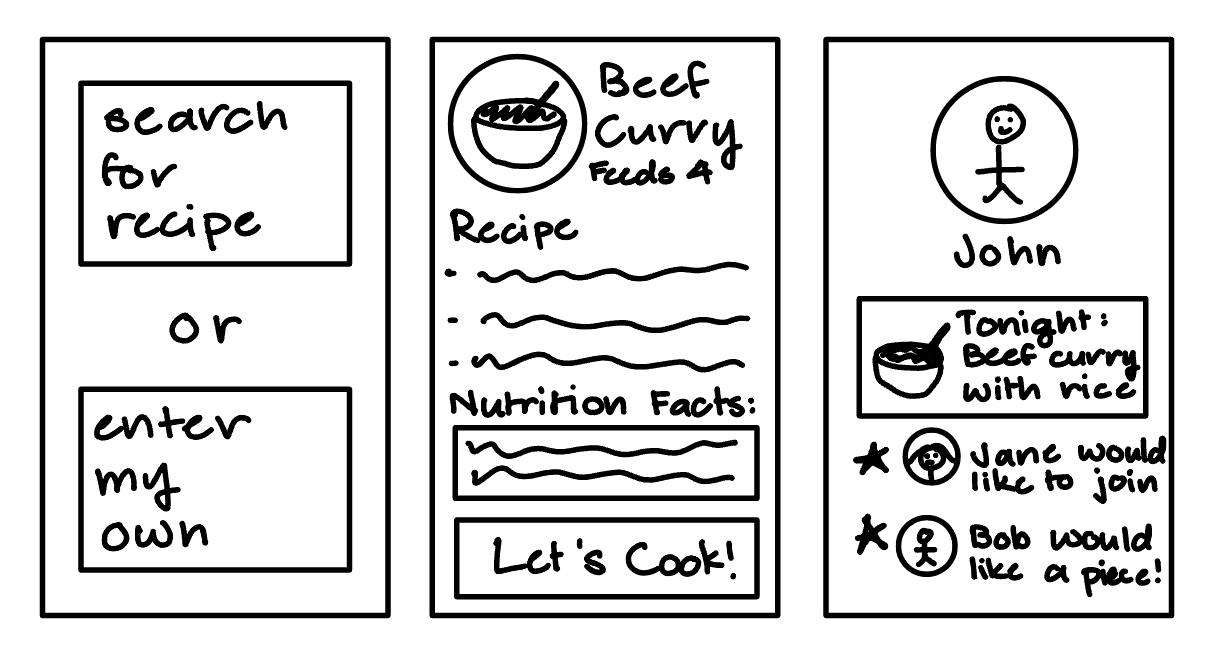 search
for
recipe
or
enter
my
own
Beef
Curry
Feeds 4
Recipe
Nutrition Facts:
Let's Cook!
John
Tonight:
Beef curry
with rice
Jane would
like to join
Bob would
like a piece!